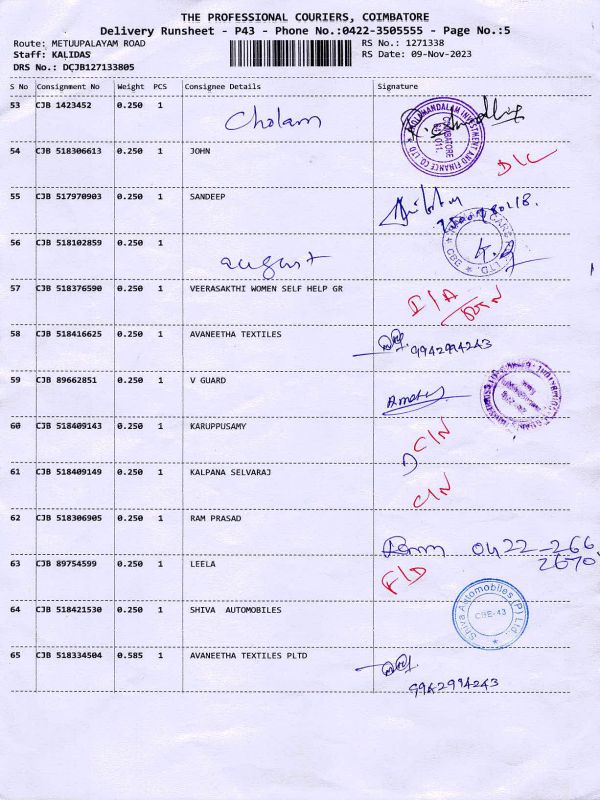 THE PROFESSIONAL COURIERS, COIMBATORE
Delivery Runsheet - P43 - Phone No.:0422-3505555 - Page No.:5
Route: METUUPALAYAM ROAD RS No.: 1271338
Staff: KALIDAS RS Date: 09-Nov-2023
DRS No.: DCJB127133805
S No Consignment No Weight PCS Consignee Details Signature
53 CJB 1423452 0.250 1 Cholam
CHOLAMANDALAM INVESTMENT AND FINANCE CO LTD COIMBATORE
54 CJB 518306613 0.250 1 JOHN D/C
55 CJB 517970903 0.250 1 SANDEEP
56 CJB 518102859 0.250 1 august
CBE
57 CJB 518376590 0.250 1 VEERASAKTHI WOMEN SELF HELP GR I/A RTN
58 CJB 518416625 0.250 1 AVANEETHA TEXTILES 9942994243
59 CJB 89662851 0.250 1 V GUARD
60 CJB 518409143 0.250 1 KARUPPUSAMY C/N
61 CJB 518409149 0.250 1 KALPANA SELVARAJ D C/N
62 CJB 518306905 0.250 1 RAM PRASAD 0422-266
2670
63 CJB 89754599 0.250 1 LEELA F/D
64 CJB 518421530 0.250 1 SHIVA AUTOMOBILES Shiva Automobiles (P) Ltd. CBE-43
65 CJB 518334504 0.585 1 AVANEETHA TEXTILES PLTD
9942994243